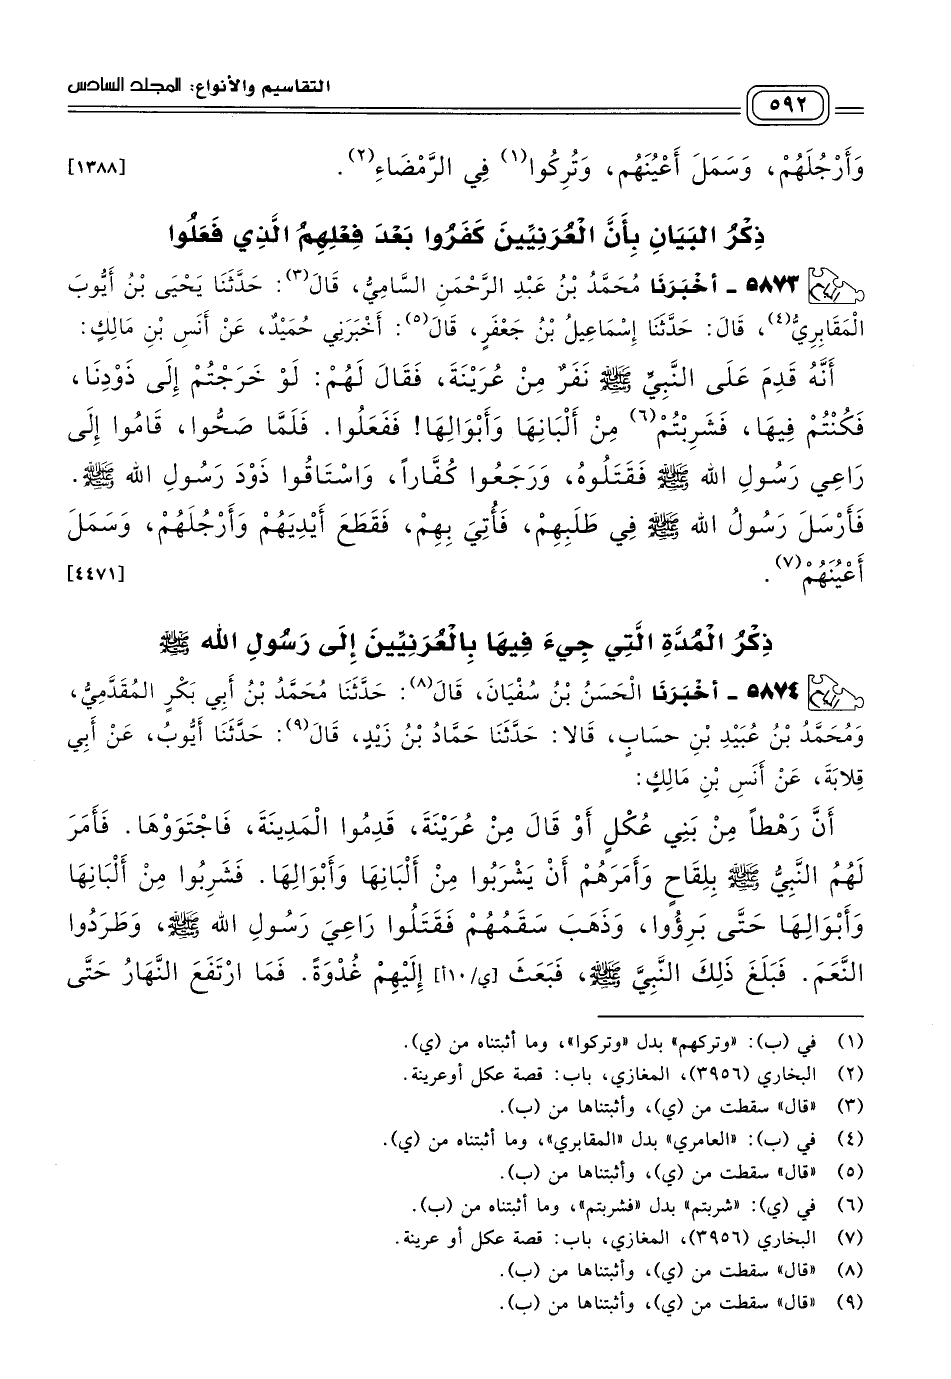 التقاسيم والأنواع: المجلد السادس
٥٩٢
وَأَرْجُلَهُمْ، وَسَمَلَ أَعْيُنَهُم، وَتُرِكُوا(١) فِي الرَّمْضَاءِ(٢). [١٣٨٨]
ذِكْرُ الْبَيَانِ بِأَنَّ الْعُرَنِيِّينَ كَفَرُوا بَعْدَ فِعْلِهِمُ الَّذِي فَعَلُوا
٥٨٧٣ ـ أخْبَرَنَا مُحَمَّدُ بْنُ عَبْدِ الرَّحْمَنِ السَّامِيُّ، قَالَ(٣): حَدَّثَنَا يَحْيَى بْنُ أَيُّوبَ
الْمَقَابِرِيُّ(٤)، قَالَ: حَدَّثَنَا إِسْمَاعِيلُ بْنُ جَعْفَرٍ، قَالَ(٥): أَخْبَرَنِي حُمَيْدٌ، عَنْ أَنَسِ بْنِ مَالِكٍ:
أَنَّهُ قَدِمَ عَلَى النَّبِيِّ ﷺ نَفَرٌ مِنْ عُرَيْنَةَ، فَقَالَ لَهُمْ: لَوْ خَرَجْتُمْ إِلَى ذَوْدِنَا،
فَكُنْتُمْ فِيهَا، فَشَرِبْتُمْ(٦) مِنْ أَلْبَانِهَا وَأَبْوَالِهَا! فَفَعَلُوا. فَلَمَّا صَحُّوا، قَامُوا إِلَى
رَاعِي رَسُولِ الله ﷺ فَقَتَلُوهُ، وَرَجَعُوا كُفَّاراً، وَاسْتَاقُوا ذَوْدَ رَسُولِ الله ﷺ.
فَأَرْسَلَ رَسُولُ الله ﷺ فِي طَلَبِهِمْ، فَأُتِيَ بِهِمْ، فَقَطَعَ أَيْدِيَهُمْ وَأَرْجُلَهُمْ، وَسَمَلَ
أَعْيُنَهُمْ(٧). [٤٤٧١]
ذِكْرُ الْمُدَّةِ الَّتِي جِيءَ فِيهَا بِالْعُرَنِيِّينَ إِلَى رَسُولِ الله ﷺ
٥٨٧٤ ـ أخْبَرَنَا الْحَسَنُ بْنُ سُفْيَانَ، قَالَ(٨): حَدَّثَنَا مُحَمَّدُ بْنُ أَبِي بَكْرٍ الْمُقَدَّمِيُّ،
وَمُحَمَّدُ بْنُ عُبَيْدِ بْنِ حِسَابٍ، قَالا: حَدَّثَنَا حَمَّادُ بْنُ زَيْدٍ، قَالَ(٩): حَدَّثَنَا أَيُّوبُ، عَنْ أَبِي
قِلابَةَ، عَنْ أَنَسِ بْنِ مَالِكٍ:
أَنَّ رَهْطاً مِنْ بَنِي عُكْلٍ أَوْ قَالَ مِنْ عُرَيْنَةَ، قَدِمُوا الْمَدِينَةَ، فَاجْتَوَوْهَا. فَأَمَرَ
لَهُمُ النَّبِيُّ ﷺ بِلِقَاحٍ وَأَمَرَهُمْ أَنْ يَشْرَبُوا مِنْ أَلْبَانِهَا وَأَبْوَالِهَا. فَشَرِبُوا مِنْ أَلْبَانِهَا
وَأَبْوَالِهَا حَتَّى بَرِؤُوا، وَذَهَبَ سَقَمُهُمْ فَقَتَلُوا رَاعِيَ رَسُولِ الله ﷺ، وَطَرَدُوا
النَّعَمَ. فَبَلَغَ ذَلِكَ النَّبِيَّ ﷺ، فَبَعَثَ [ي/١٠أ] إِلَيْهِمْ غُدْوَةً. فَمَا ارْتَفَعَ النَّهَارُ حَتَّى
(١) في (ب): «وتركهم» بدل «وتركوا»، وما أثبتناه من (ي).
(٢) البخاري (٣٩٥٦)، المغازي، باب: قصة عكل أوعرينة.
(٣) «قال» سقطت من (ي)، وأثبتناها من (ب).
(٤) في (ب): «العامري» بدل «المقابري»، وما أثبتناه من (ي).
(٥) «قال» سقطت من (ي)، وأثبتناها من (ب).
(٦) في (ي): «شربتم» بدل «فشربتم»، وما أثبتناه من (ب).
(٧) البخاري (٣٩٥٦)، المغازي، باب: قصة عكل أو عرينة.
(٨) «قال» سقطت من (ي)، وأثبتناها من (ب).
(٩) «قال» سقطت من (ي)، وأثبتناها من (ب).